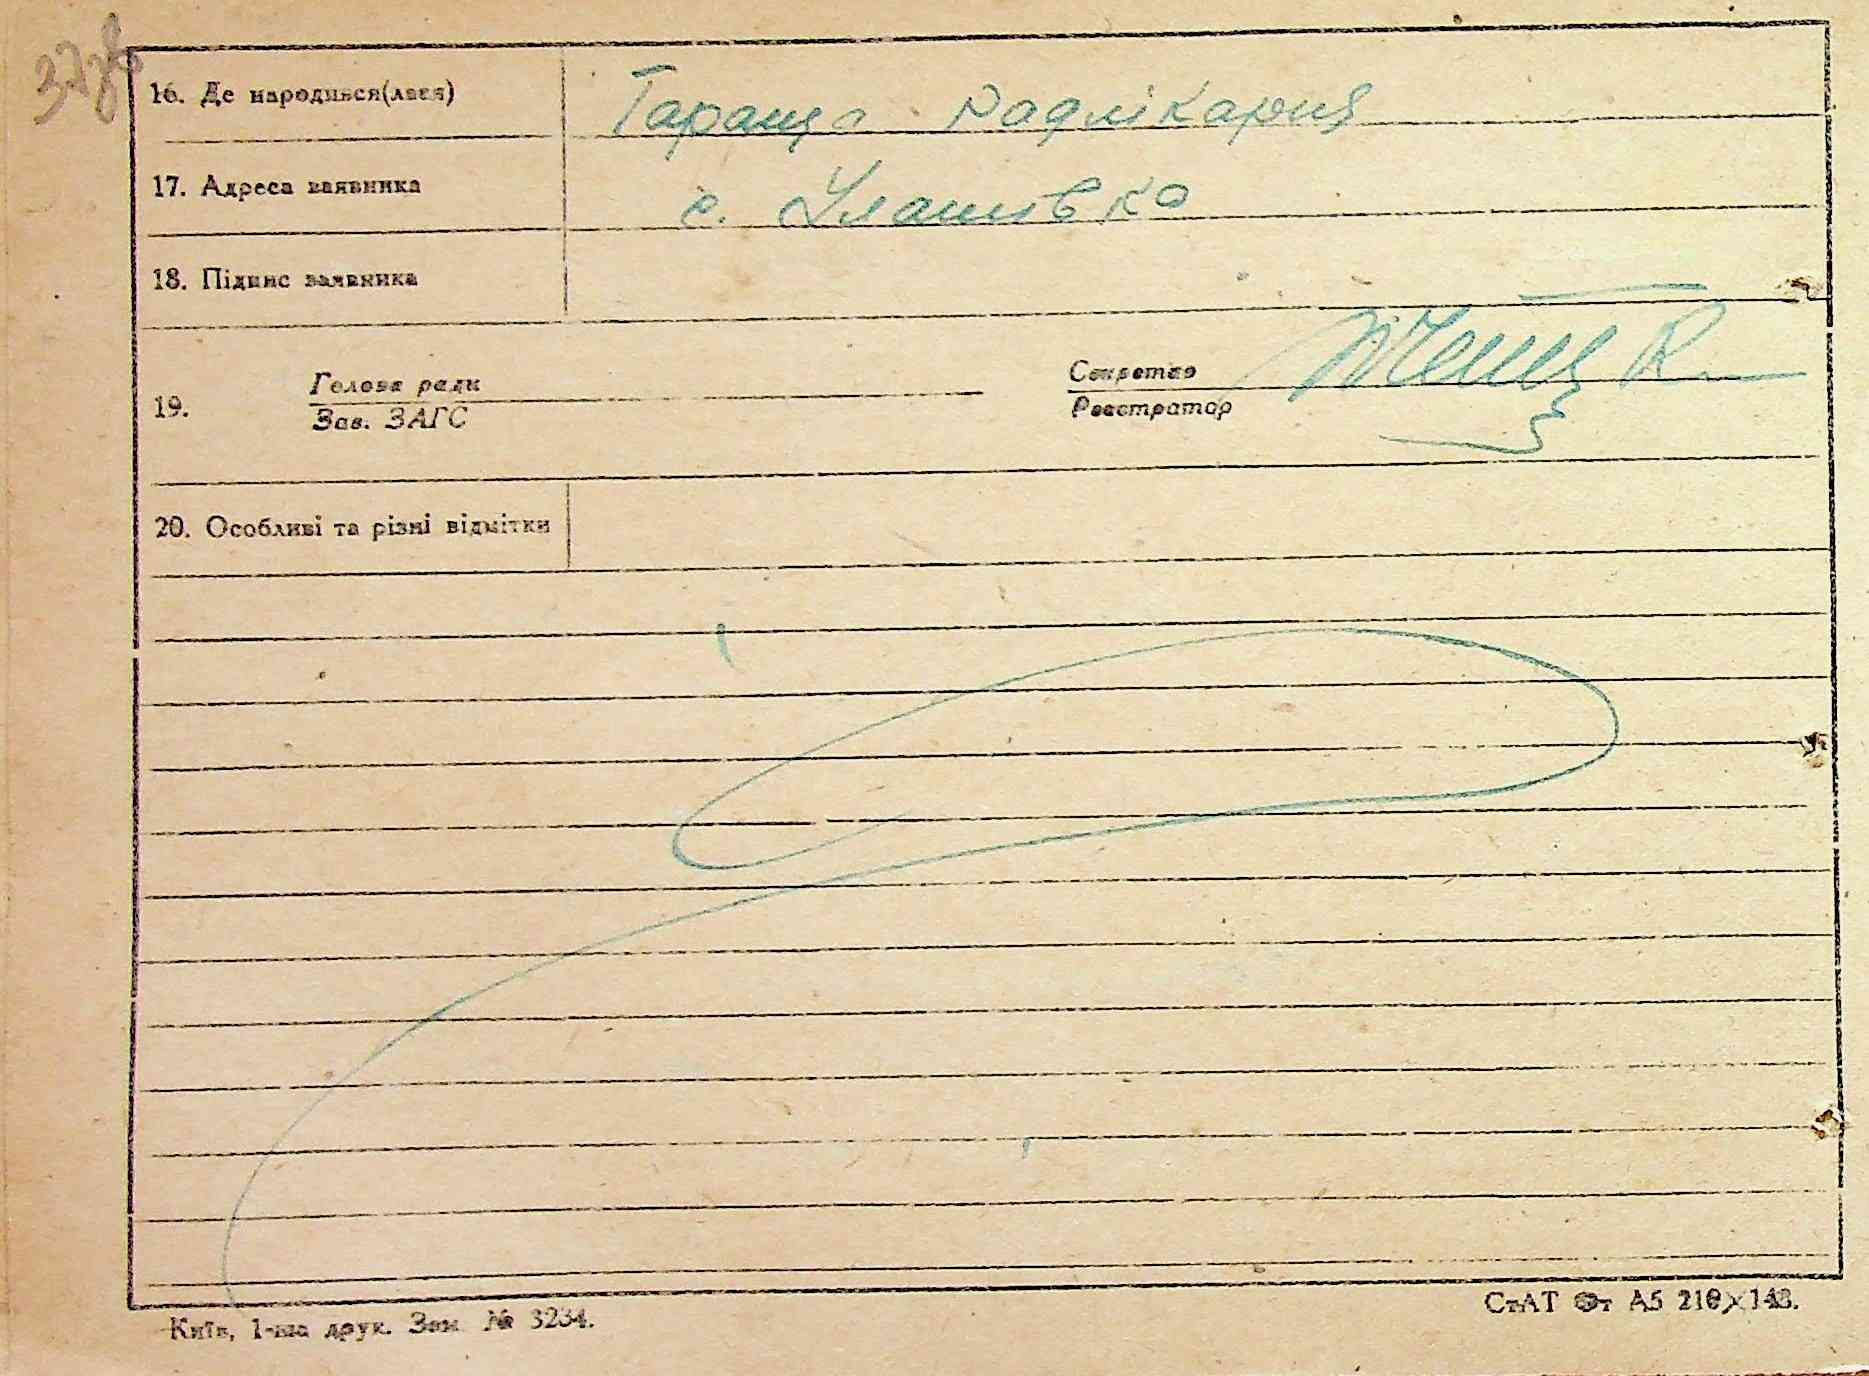 16. Де народився(лася) Тараща радлікарня
17. Адреса заявника с. Улашівка
18. Підпис заявника
19. Голова ради
Зав. ЗАГС
Секретар
Реєстратор
20. Особливі та різні відмітки
Київ, 1-ша друк. Зам. № 3234.
СтАТ Фт А5 210×148.